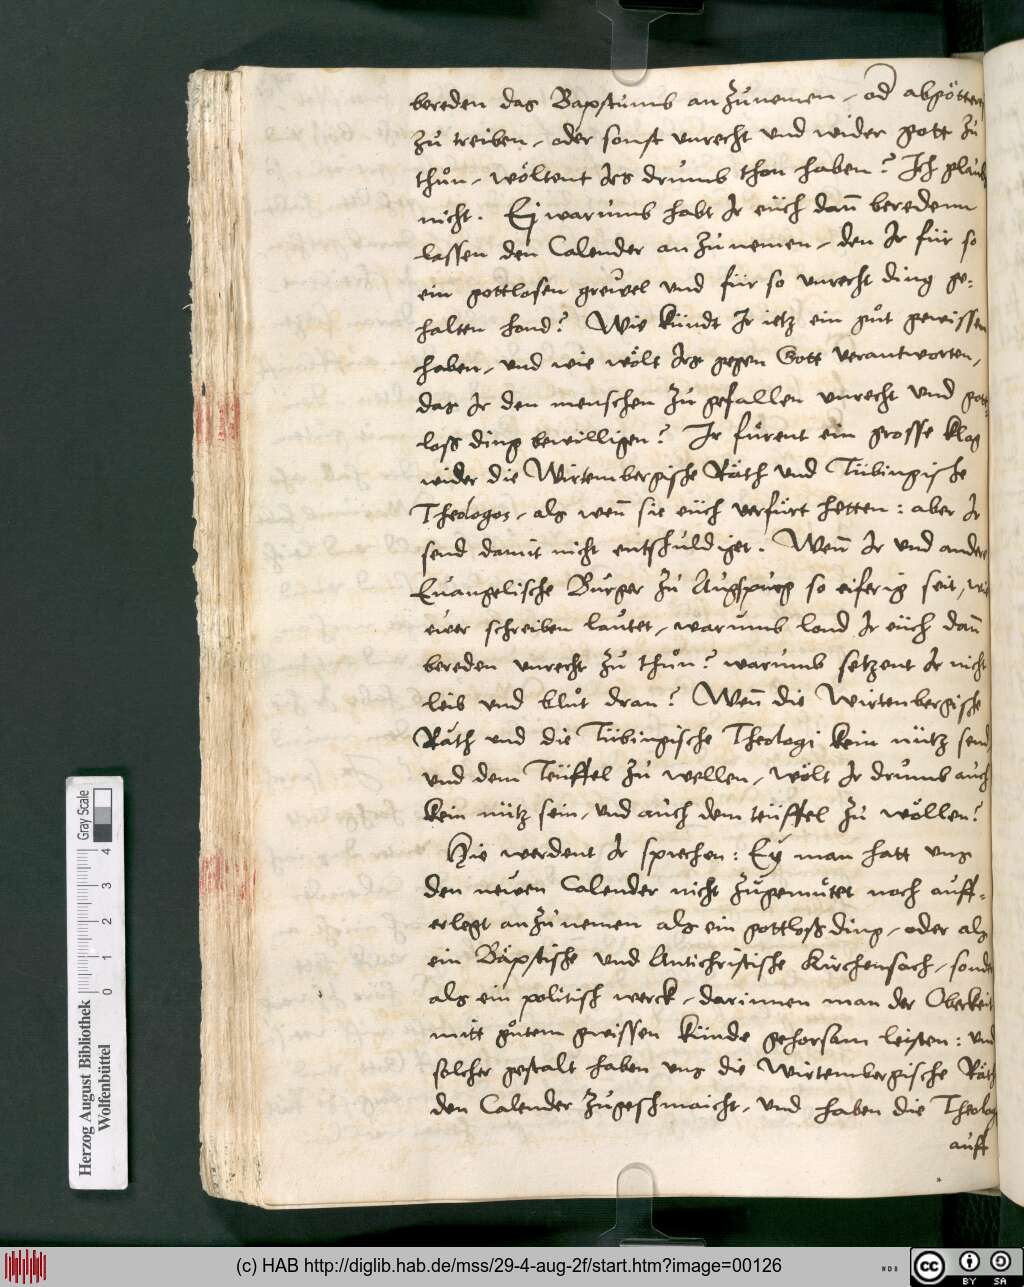 bereden das Bapstumb an zu nemen, od abgötterey
zu treiben, oder sonst unrecht und wider gott zu
thůn, wöltent irs drumb thon haben? Ich glaub
nicht. Ej warumb habt Ir eüch dañ beredenn
lassen den Calender an zu nemen, den Ir für so
ein gottlosen grewel und für so unrecht ding ge=
halten hand? Wie kündt Ir ietz ein gůt gewissen
haben, und wie wölt Irs gegen Gott verantworten,
das Ir den menschen zu gefallen unrecht und gott
loß ding bewilligen? Ir fürent ein grosse klag
wider die Wirtembergische Räth und Tübingische
Theologos, als weñ sie eüch verfürt hetten: aber Ir
send damit nicht entschuldiget. Weñ Ir und andere
Euangelische Burger zu Augspurg so eiferig seit, wie
ewer schreiben lautet, warumb land Ir eüch dañ
bereden unrecht zu thůn? warumb setzent Ir nicht
leib und blůt dran? Weñ die Wirtenbergische
Räth und die Tübingische Theologi kein nütz send
und dem Teüffel zu wellen, wölt Ir drumb auch
kein nütz sein, und auch dem teüffel zu wöllen?
Hie werdent Ir sprechen: Ey man hatt uns
den newen Calender nicht zugemůtet noch auff=
erlegt anzunemen als ein gottloß ding, oder als
ein Bäpstische und Antichristische Kirchensach, sonder
als ein politisch werck, darinnen man der Oberkeit
mitt gůtem gwissen künde gehorsam leisten: und
solcher gestalt haben uns die Wirtembergische Räth
den Calender zugeschmaicht, und haben die Theolog
auff
Herzog August Bibliothek
Wolfenbüttel
0 1 2 3 4
Gray Scale
(c) HAB http://diglib.hab.de/mss/29-4-aug-2f/start.htm?image=00126
cc BY SA